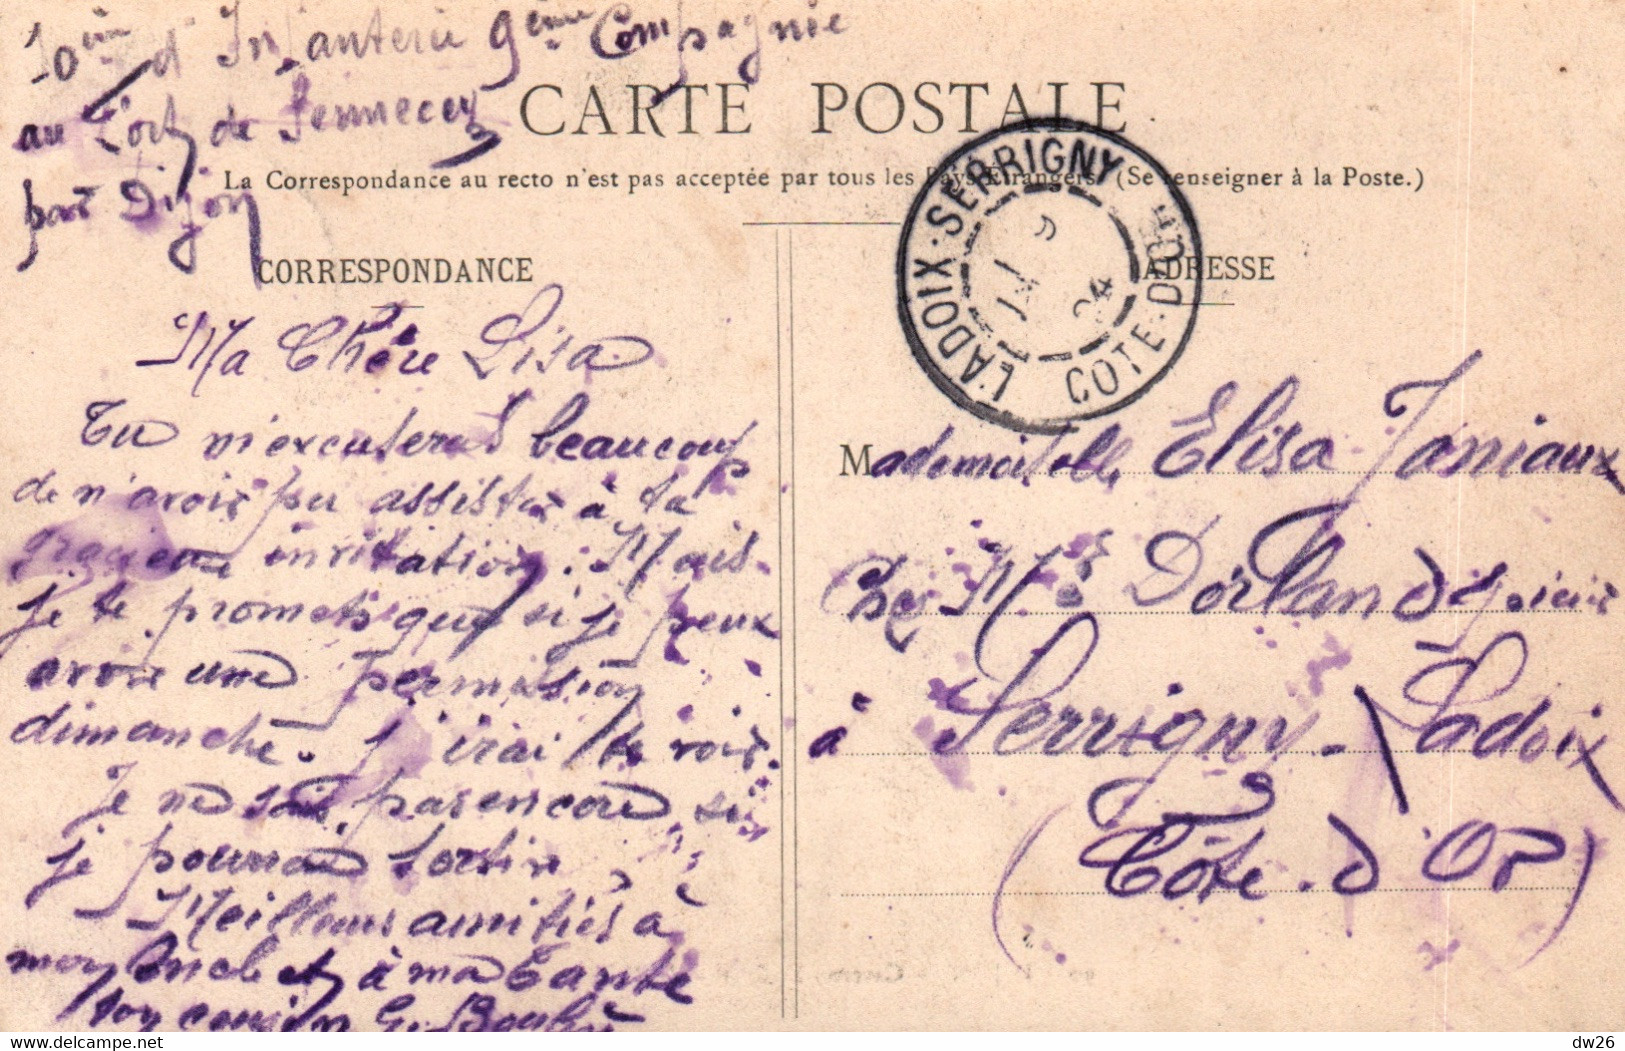 10ème d'Infanterie 9ème Compagnie
au Fort de Sennecey
par Dijon
CARTE POSTALE
La Correspondance au recto n'est pas acceptée par tous les Pays Étrangers (Se renseigner à la Poste.)
CORRESPONDANCE
Ma Chère Lisa
Tu m'excuseras beaucoup
de n'avoir pu assister à ta
gracieuse invitation. Mais
je te promets que si je peux
avoir une permission
dimanche. j'irai te voir.
Je ne sais pas encore si
je pourrai sortir
Meilleurs amitiés à
mon Oncle et à ma Tante
ton cousin
LADOIX-SERRIGNY
CÔTE-D'OR
ADRESSE
Mademoiselle Elisa Janiaux
Chez Mr Dorland épicier
à Serrigny-Ladoix
(Côte-d'Or)
dw26